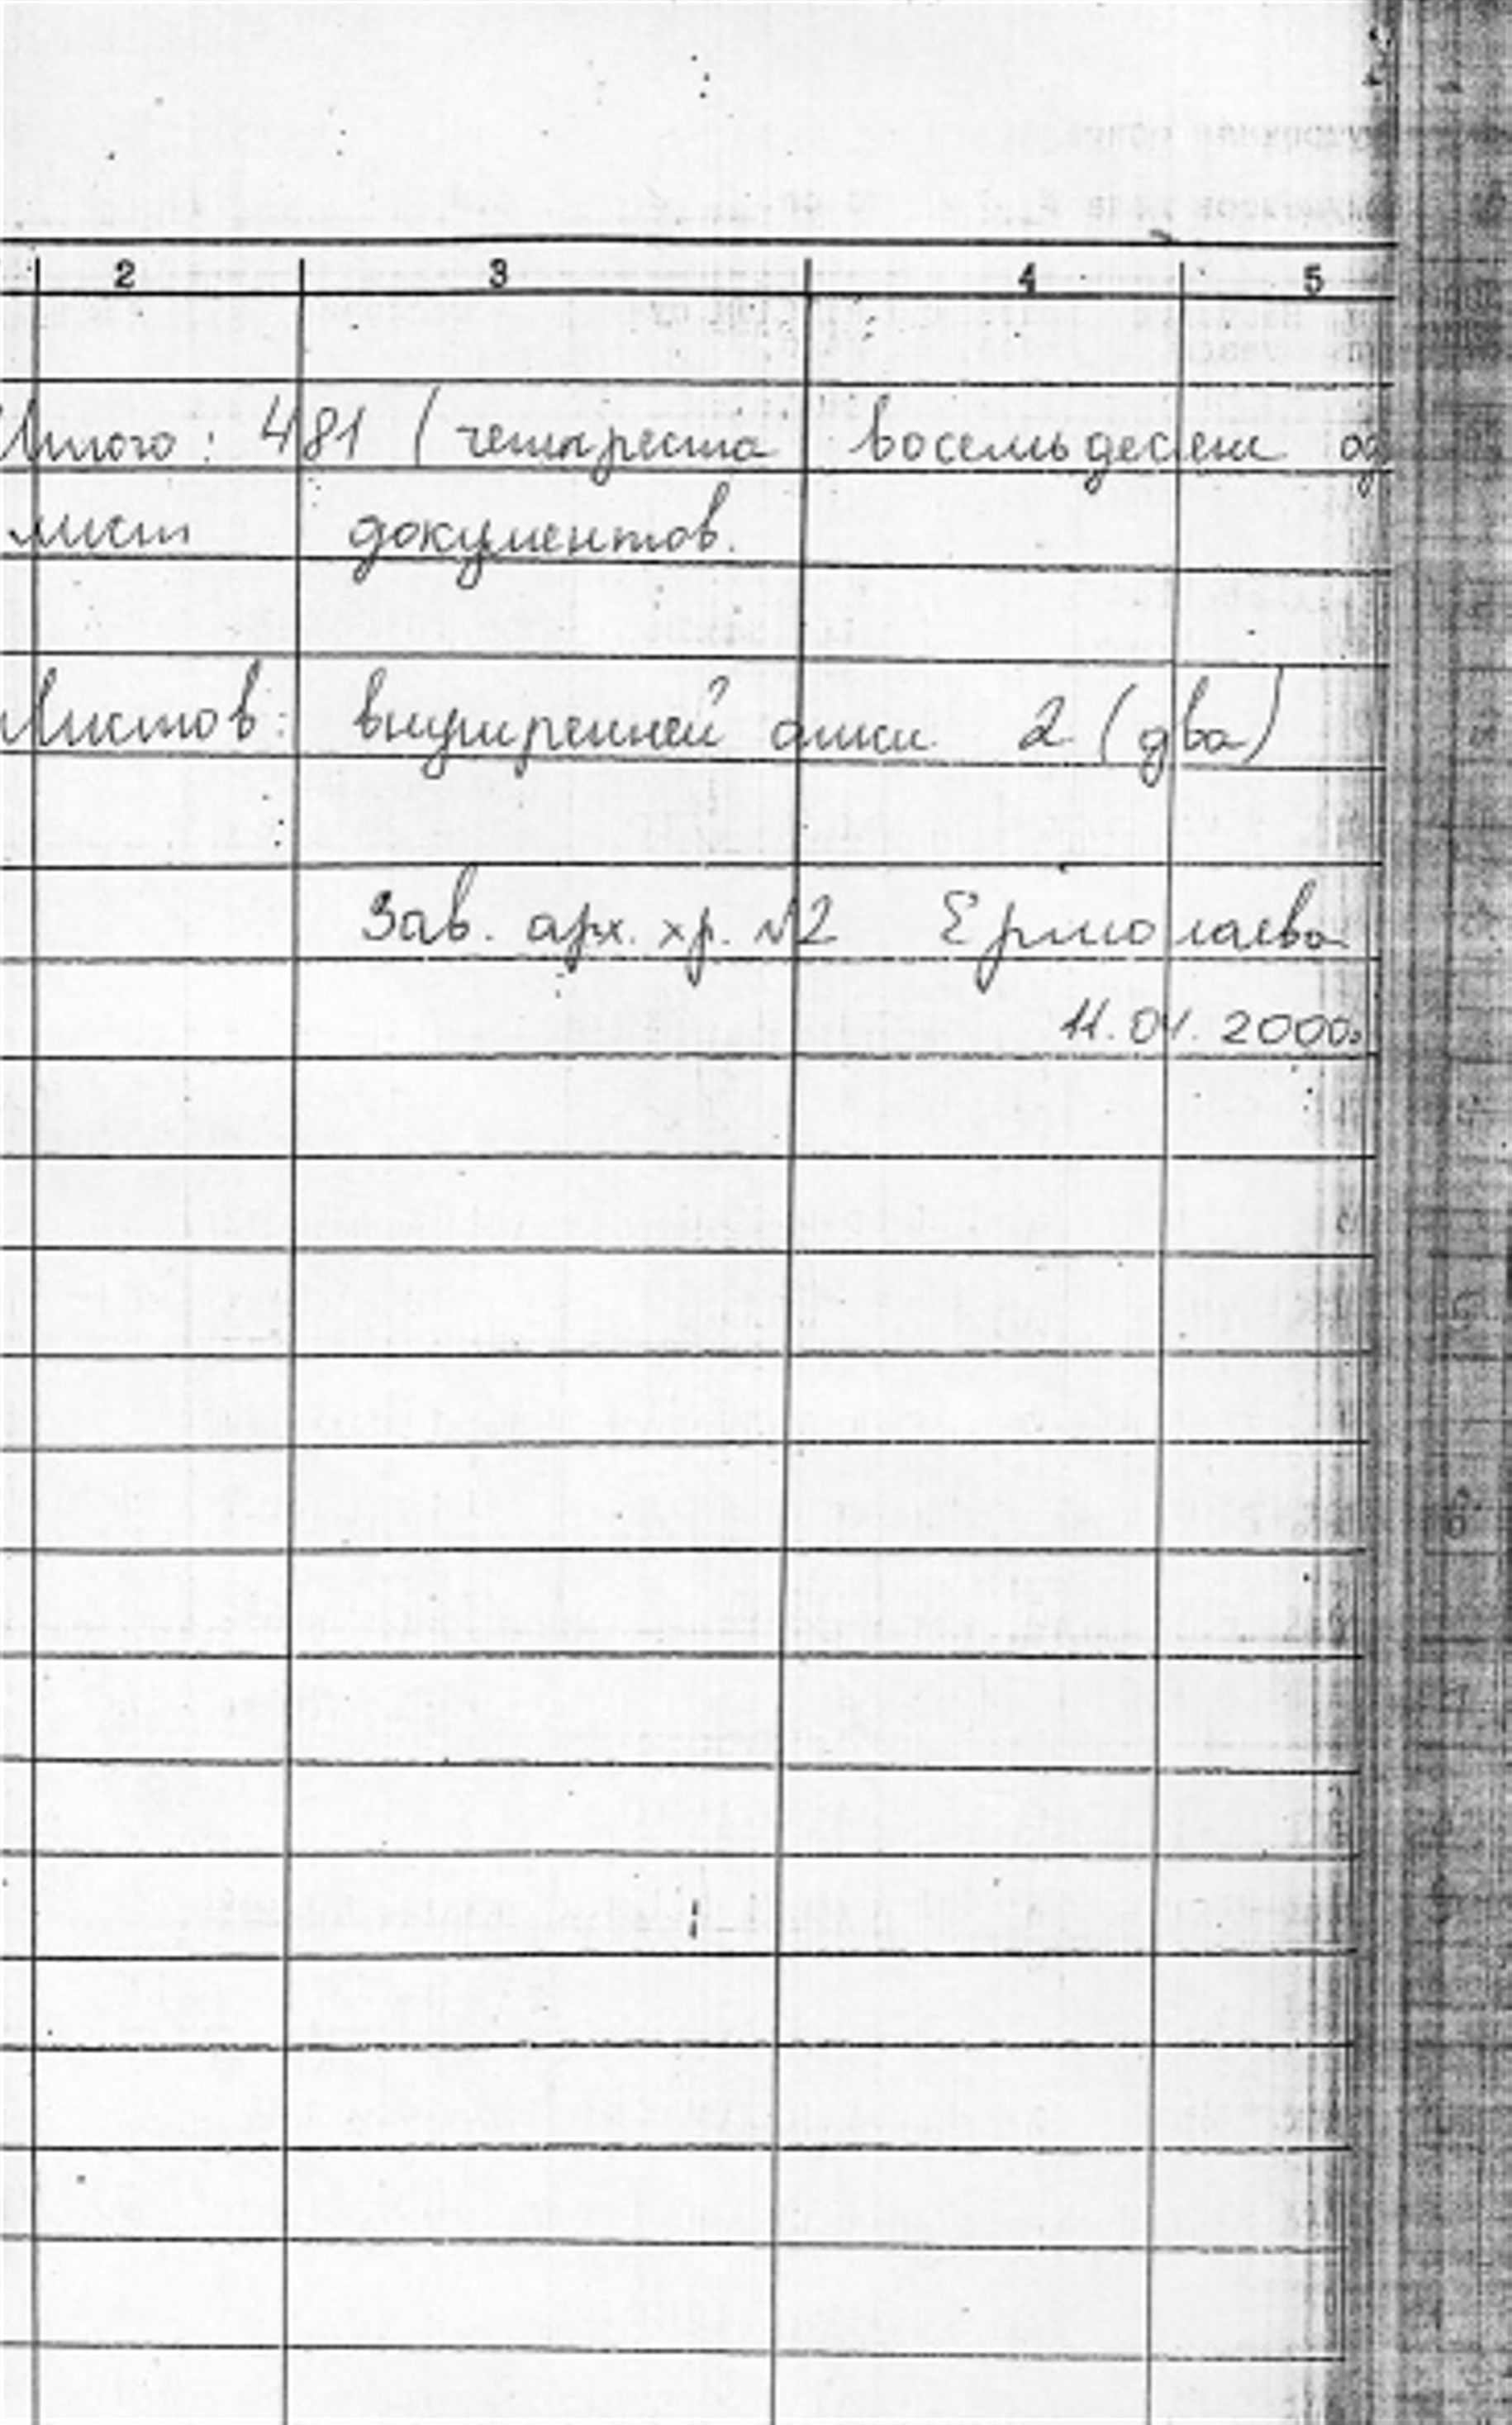 2 3 4 5
Итого: 481 (четыреста восемьдесят од
лист документов.
Листов: внутренней описи 2 (два)
Зав. арх. хр. №2 Ермолаева
11.01.2000г